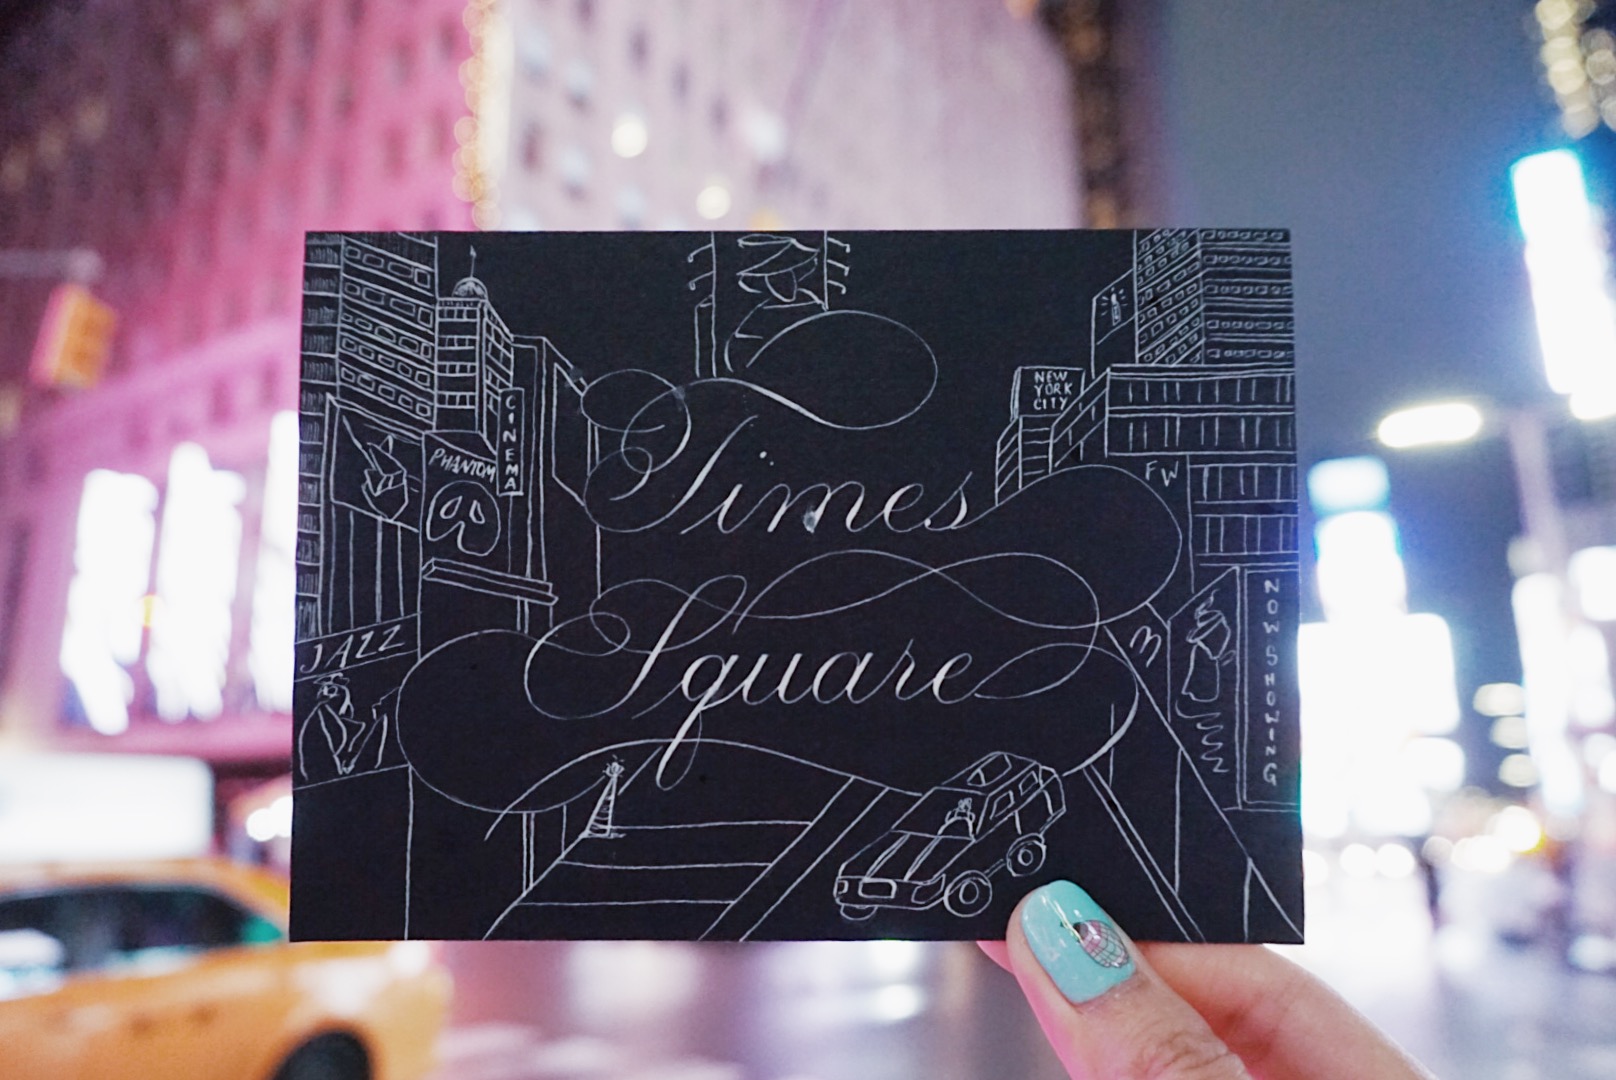 Times
Square
CINEMA
PHANTOM
JAZZ
NEW
YORK
CITY
FW
m
NOW SHOWING